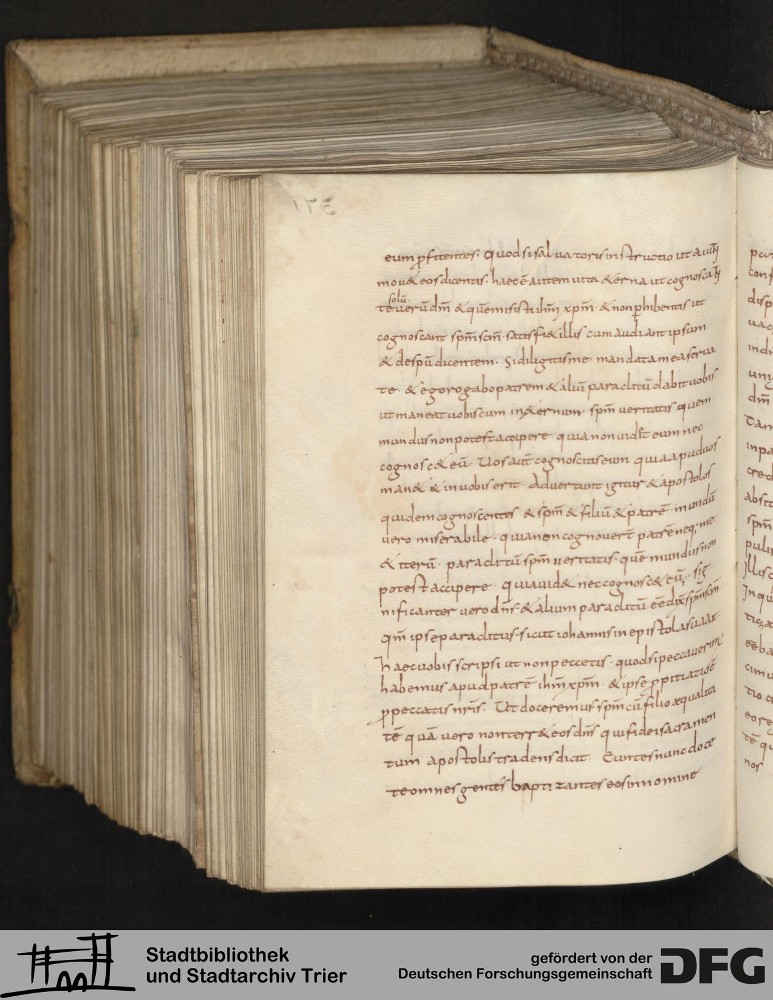 eum profitentes. Quod si saluatoris instructio ut a uitiis
mouet eos dicentis. haec ē autem uita &erna ut cognoscant
solū
te uerū dm̄ & quem misisti ihm̄ xpm̄. & non phibentis ut
cognoscant spm̄ scm̄. satisfi& illis cum audiant ipsum
& de spū dicentem. Si diligitis me mandata mea serua
te. & ego rogabo patrem & aliū paraclitū dabit uobis.
ut maneat uobiscum in &ernum. spm̄ ueritatis quem
mundus non potest accipere quia non uid& eum nec
cognosc& eū. Uos aut̄ cognoscitis eum quia apud uos
man& & in uobis erit. Aduertunt igitur & apostolos
quidem cognoscentes & spm̄ & filiū & patrē. mundū
uero miserabile. quia non cognouerē patrē neq; me
& iterū. paraclitū spm̄ ueritatis. quē mundus non
potest accipere. quia uid& nec cognosc& eū. Sig
nificanter uero dn̄s & alium paraclitū eē dix spm̄ scm̄
qm̄ ipse paraclitus. sicut iohannis in epistola sua ait
haec uobis scripsi ut non peccetis. quod si peccauerim
habemus apud patrē ihm̄ xpm̄. & ipse ppitiatio ē
p peccatis nr̄is. Ut doceremus spm̄ cū filio aequalita
tē quā uero non terr& eos dn̄s qui fidei sacramen
tum apostolis tradens dicit. Euntes nunc doce
te omnes gentes baptizantes eos in nomine
Stadtbibliothek
und Stadtarchiv Trier
gefördert von der
Deutschen Forschungsgemeinschaft DFG